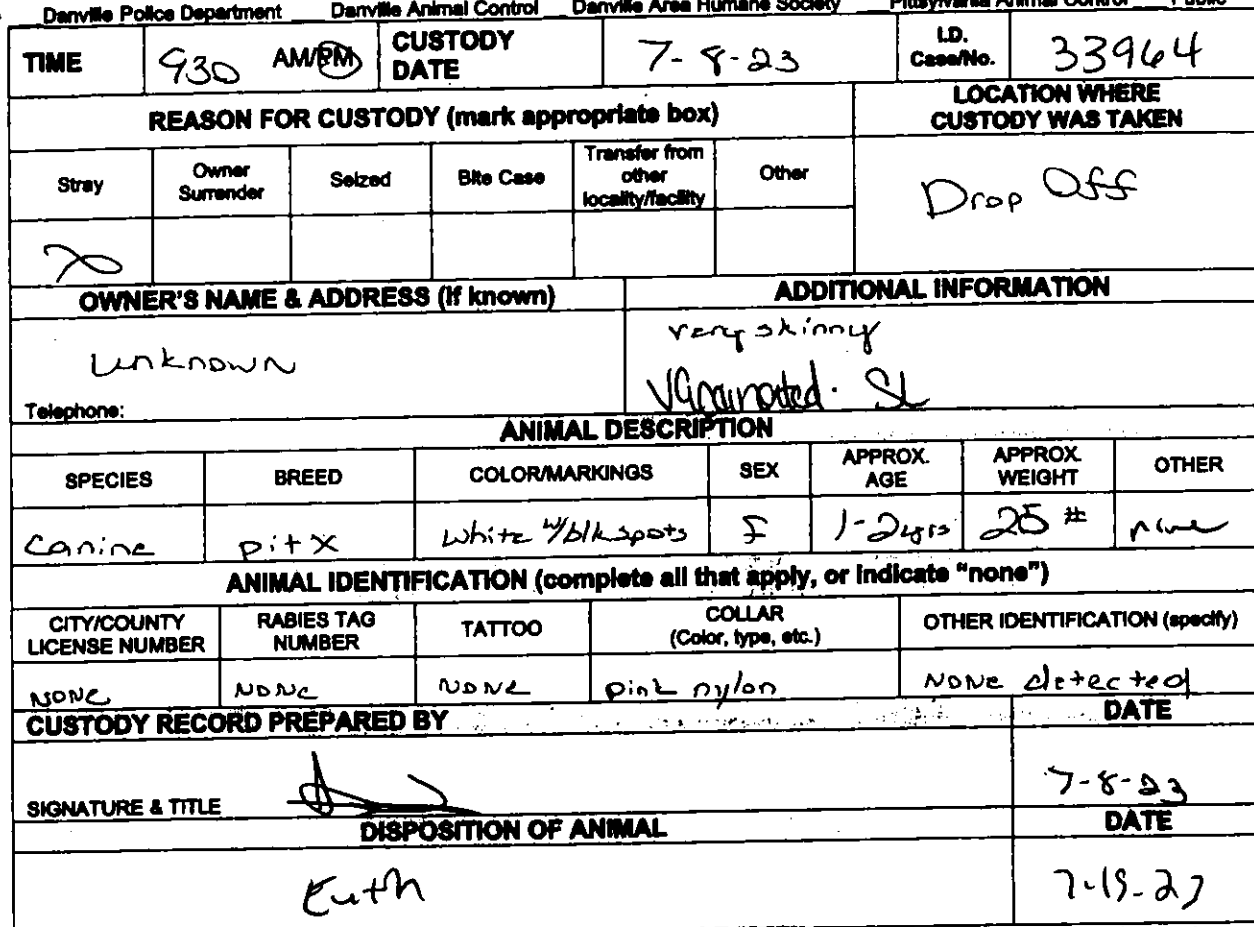 Danville Police Department Danville Animal Control Danville Area Humane Society Pittsylvania Animal Control Public
TIME 930 AM/PM CUSTODY DATE 7-8-23 I.D. Case/No. 33964
REASON FOR CUSTODY (mark appropriate box) LOCATION WHERE CUSTODY WAS TAKEN
Stray Owner Surrender Seized Bite Case Transfer from other locality/facility Other
Drop Off
X
OWNER'S NAME & ADDRESS (if known) ADDITIONAL INFORMATION
unknown
very skinny
Vaccinated. SL
Telephone:
ANIMAL DESCRIPTION
SPECIES BREED COLOR/MARKINGS SEX APPROX. AGE APPROX. WEIGHT OTHER
canine pit X white w/blk spots F 1-2yrs 25 #
ANIMAL IDENTIFICATION (complete all that apply, or indicate "none")
CITY/COUNTY LICENSE NUMBER RABIES TAG NUMBER TATTOO COLLAR (Color, type, etc.) OTHER IDENTIFICATION (specify)
NONE NONE NONE pink nylon NONE detected
CUSTODY RECORD PREPARED BY DATE
SIGNATURE & TITLE 7-8-23
DISPOSITION OF ANIMAL DATE
Euth